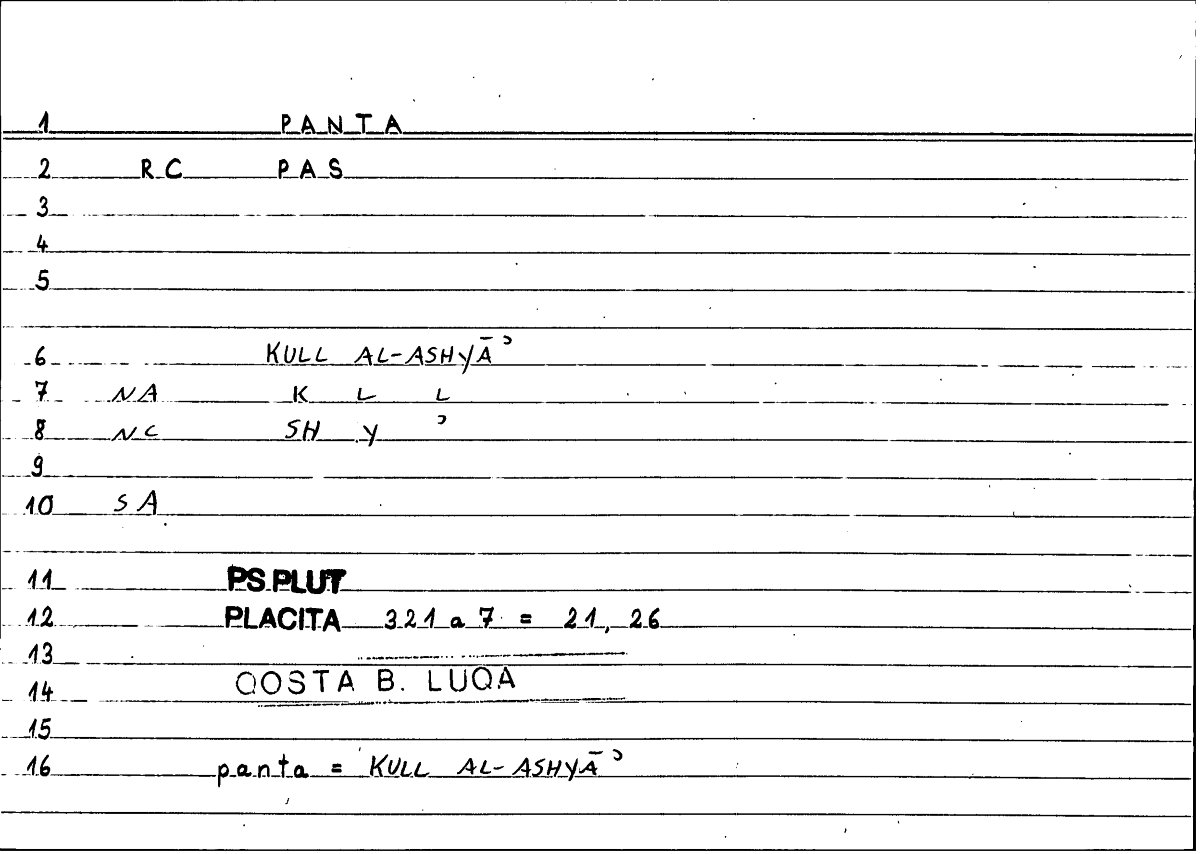 1 PANTA
2 RC PAS
3
4
5
6 KULL AL-ASHYĀʾ
7 NA K L L
8 NC SH Y ʾ
9
10 SA
11 PS.PLUT
12 PLACITA 321 a 7 = 21, 26
13
14 QOSTA B. LUQA
15
16 panta = KULL AL-ASHYĀʾ